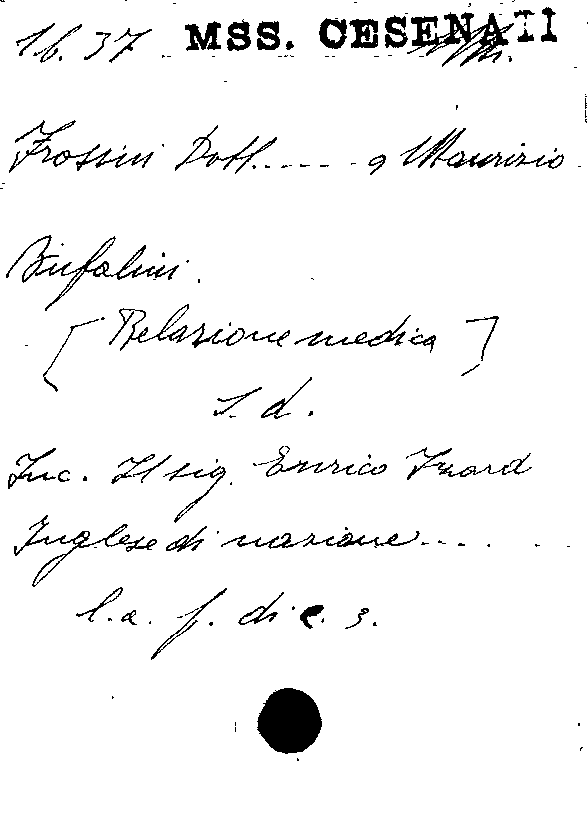 16. 37 MSS. CESENATI
Frossini Dott..... a Maurizio
Bufalini.
[Relazione medica]
S. d.
Inc. Il sig. Enrico
Inglese di nazione......
l.a. f. di c. 3.